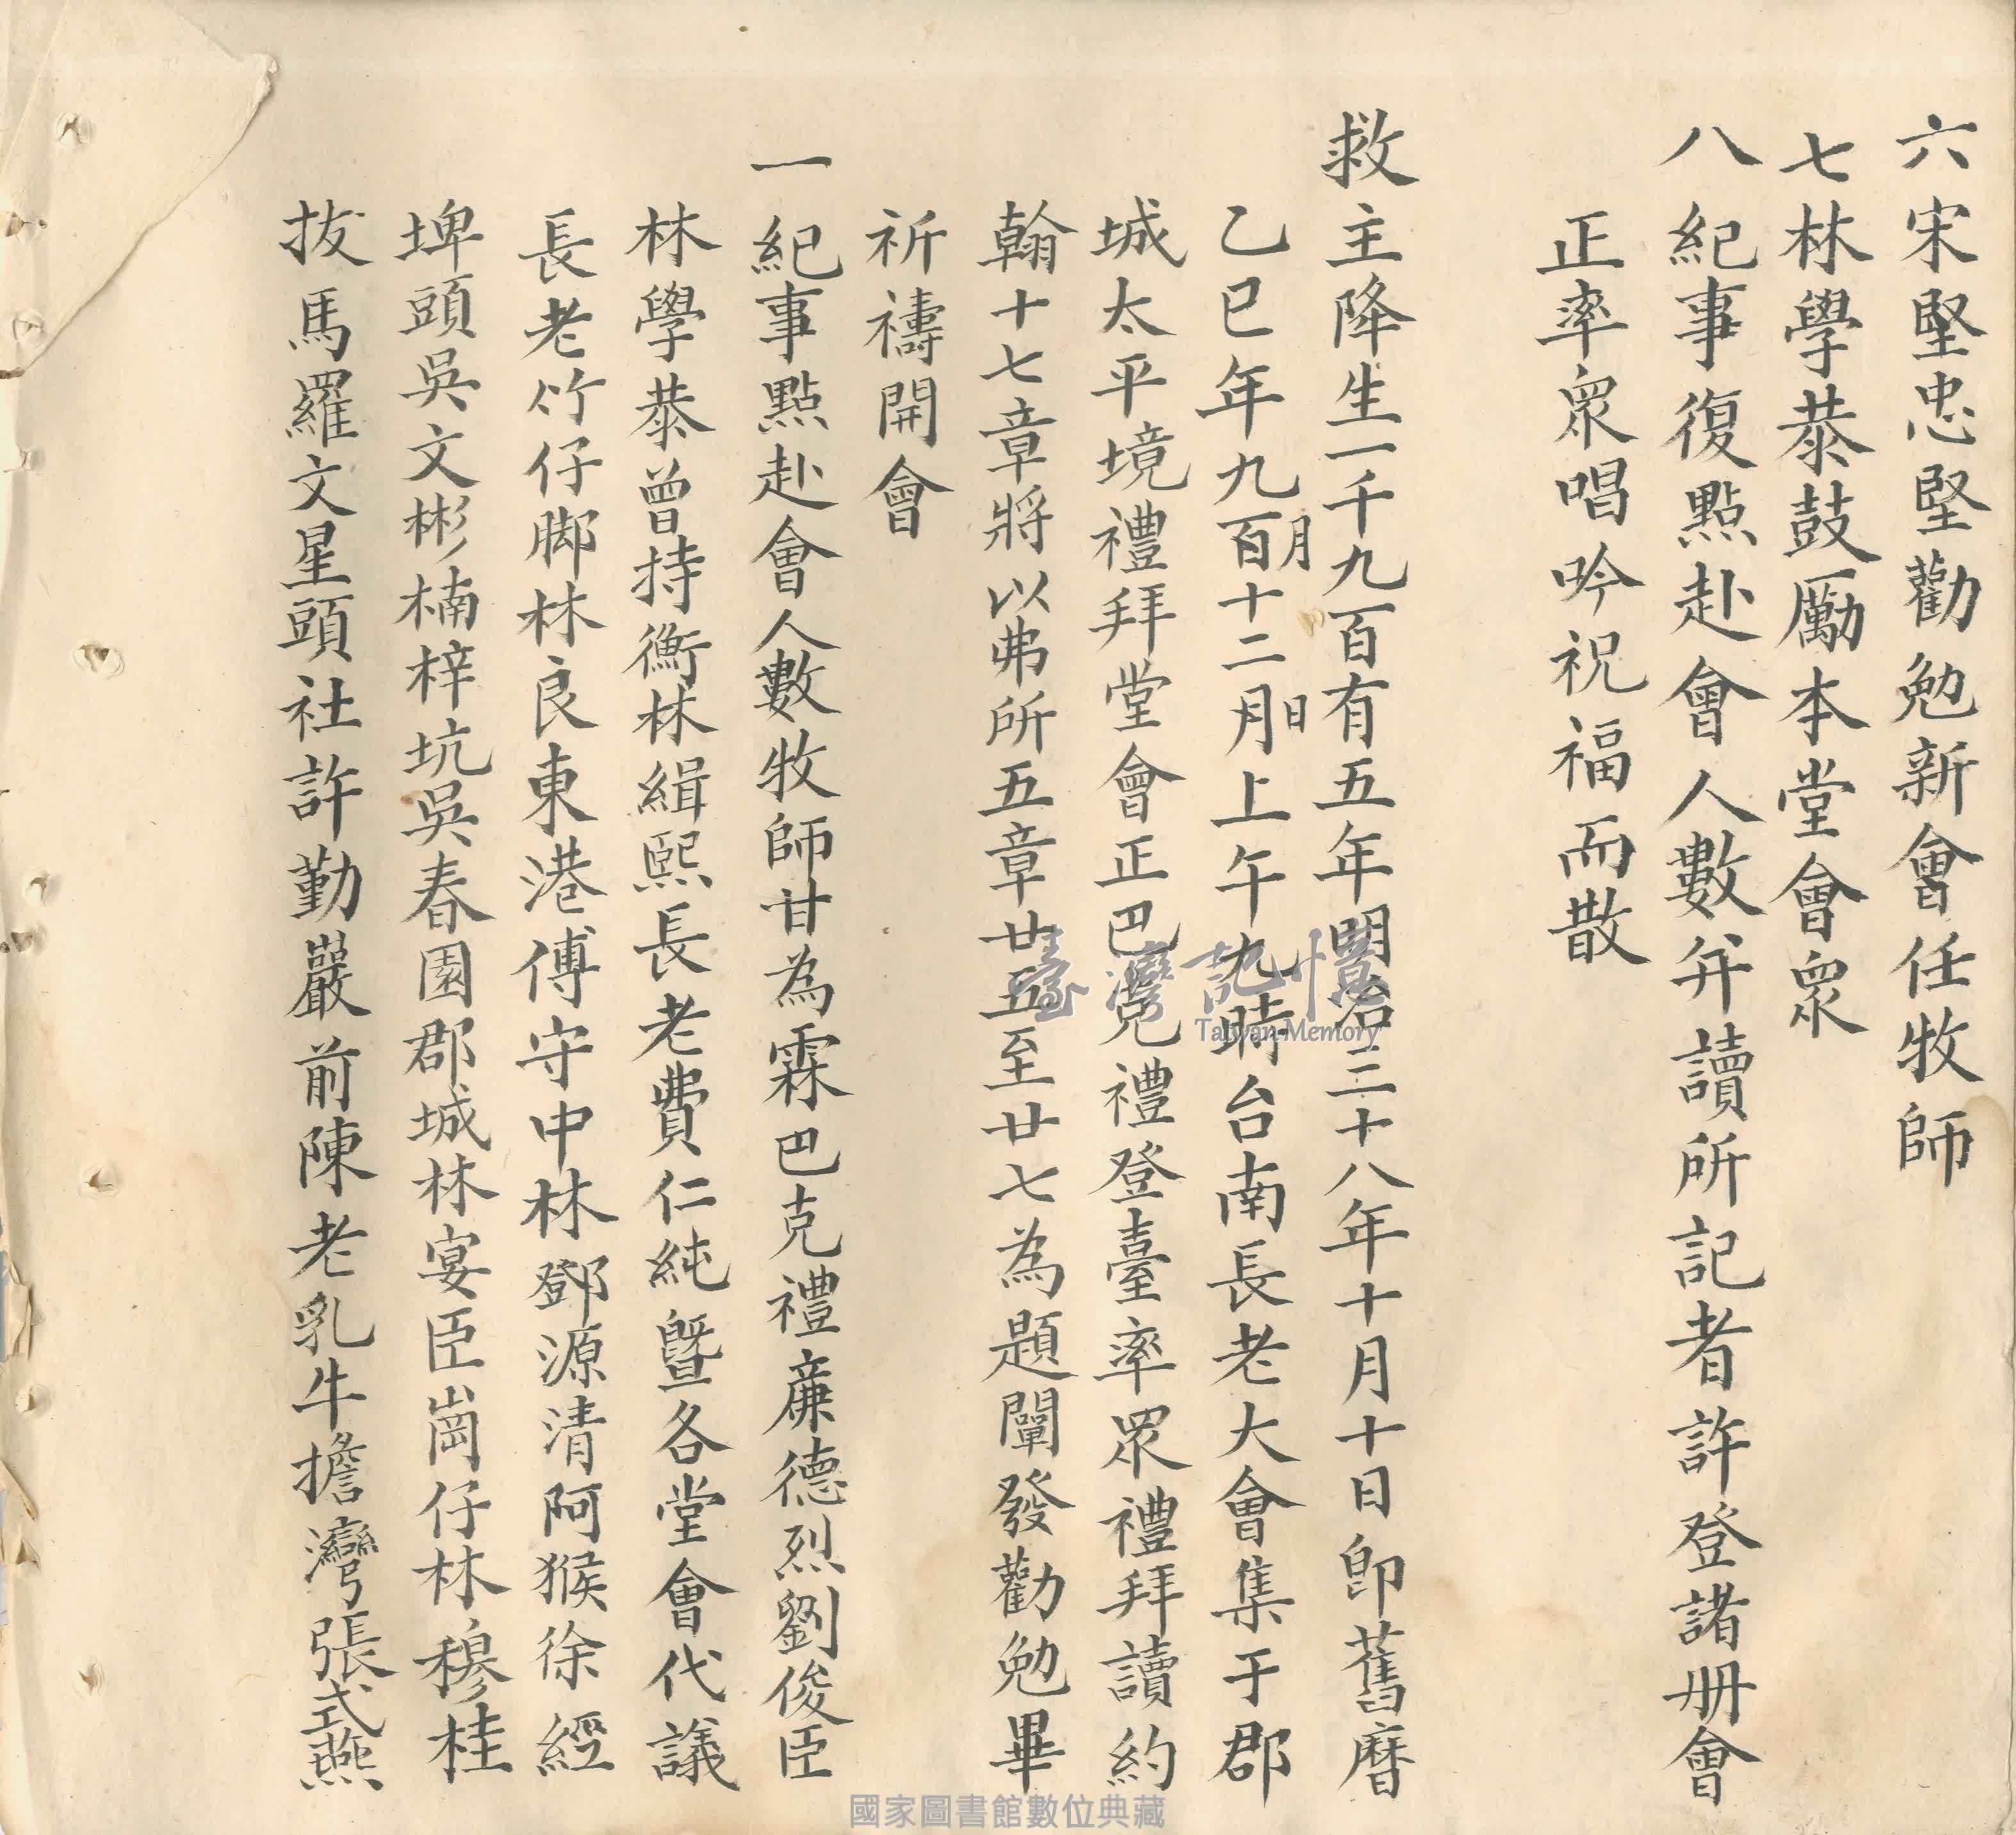 六宋堅忠堅勸勉新會任牧師
七林學恭鼓勵本堂會衆
八紀事復點赴會人數弁讀所記者許登諸册會
正率衆唱吟祝福而散
救主降生一千九百有五年明治三十八年十月十日卽舊曆
乙巳年九月百十二日月上午九時台南長老大會集于郡
城太平境禮拜堂會正巴克禮登臺率眾禮拜讀約
翰十七章將以弗所五章廿五至廿七為題闡發勸勉畢
祈禱開會
一紀事點赴會人數牧師甘為霖巴克禮廉德烈劉俊臣
林學恭曾持衡林緝熙長老費仁純暨各堂會代議
長老竹仔脚林良東港傅守中林鄧源清阿猴徐經
埤頭吳文彬楠梓坑吳春園郡城林宴臣崗仔林穆桂
拔馬羅文星頭社許勤嚴前陳老乳牛擔灣張式燕
臺灣記憶
Taiwan Memory
國家圖書館數位典藏